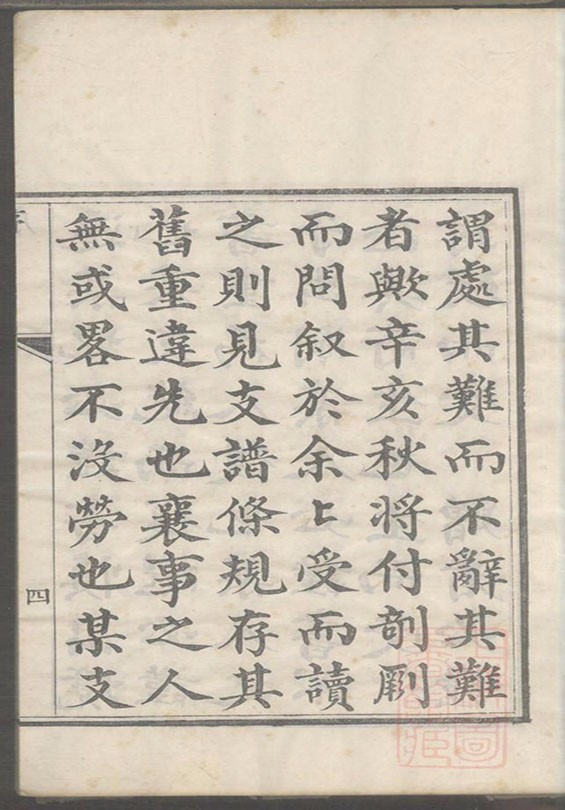 謂處其難而不辭其難
者歟辛亥秋將付剞劂
而問叙於余〻受而讀
之則見支譜條規存其
舊重違先也襄事之人
無或畧不没勞也某支
四